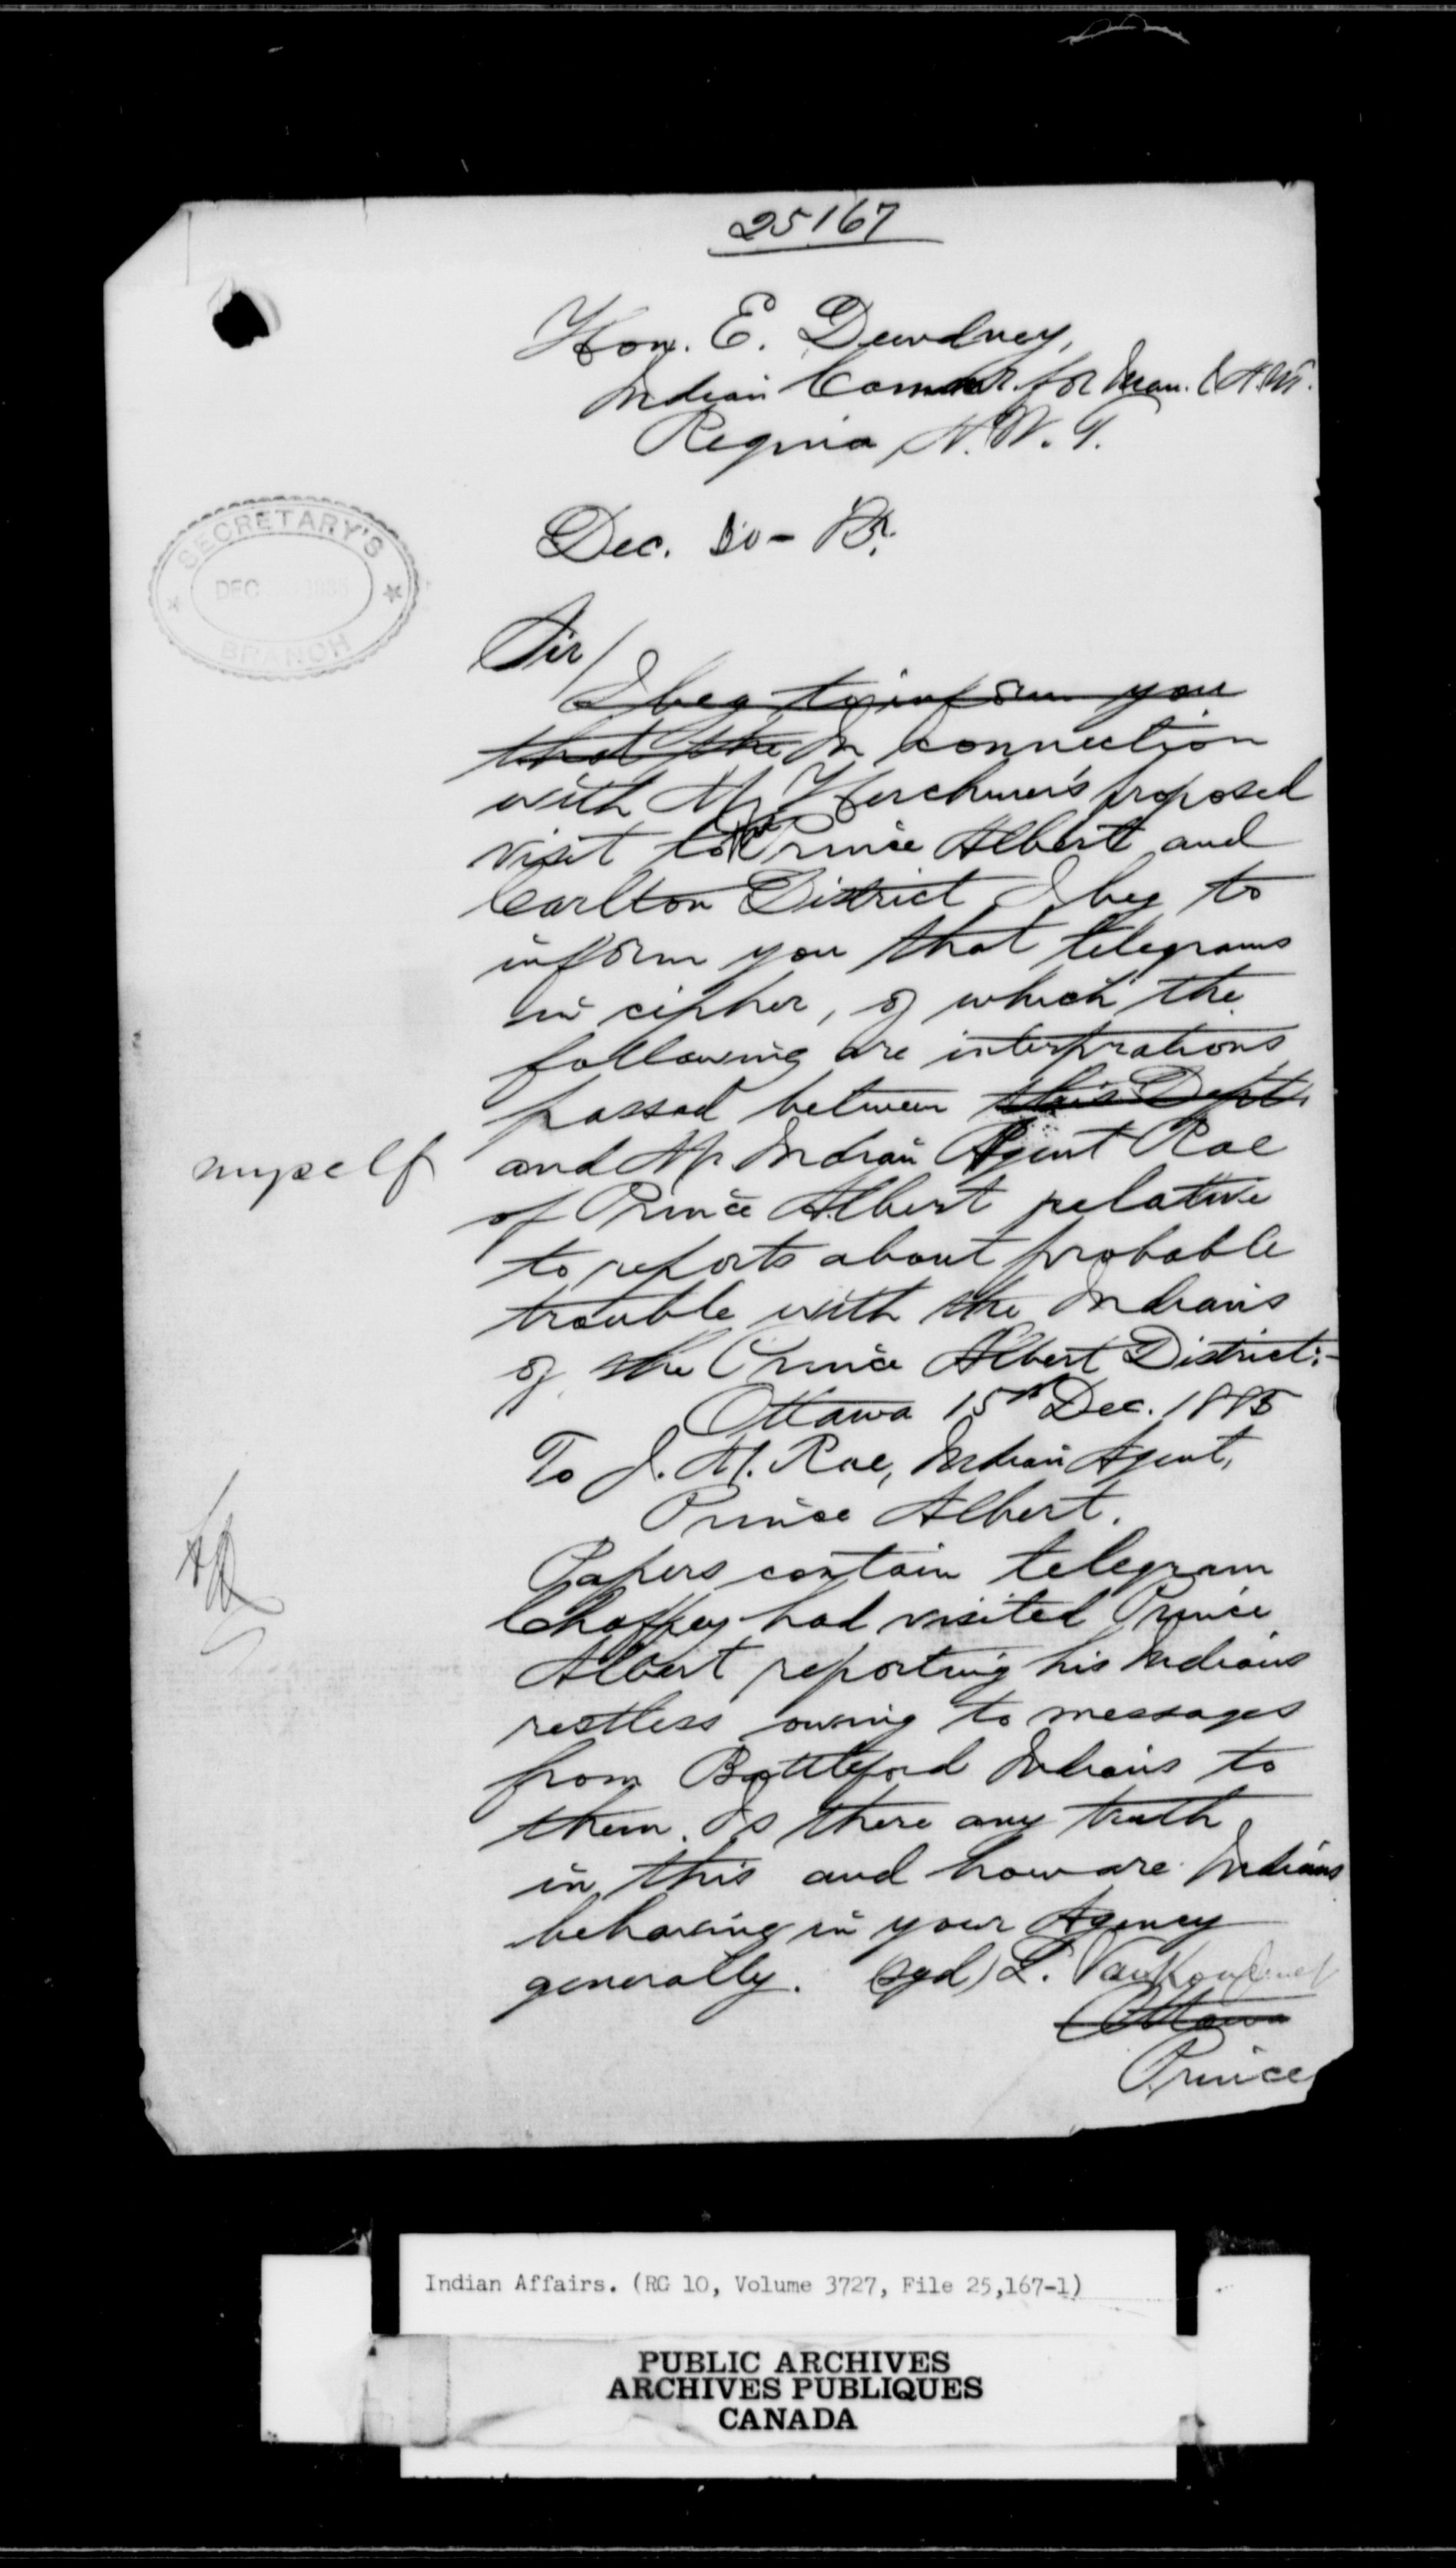 25167
Hon. E. Dewdney,
Indian Commr. for Man. & N.W.T.
Regina N.W.T.
SECRETARY'S
DEC 1885
BRANCH
Dec.
Sir/
I beg to inform you
that the In connection
with Mr Herchmer's proposed
visit to the Prince Albert and
Carlton District I beg to
inform you that telegrams
in cipher, of which the
following are interprations
passed between this Dept.
myself and Mr. Indian Agent Rae
of Prince Albert relative
to reports about probable
trouble with the Indians
of the Prince Albert District:-
Ottawa 15th Dec. 1885
To J. M. Rae, Indian Agent,
Prince Albert.
Papers contain telegram
Chaffey had visited Prince
Albert reporting his Indians
restless owing to messages
from Battleford Indians to
them. Is there any truth
in this and how are Indians
behaving in your Agency
generally. (sgd) L. VanKoughnet
Ottawa
Prince
Indian Affairs. (RG 10, Volume 3727, File 25,167-1)
PUBLIC ARCHIVES
ARCHIVES PUBLIQUES
CANADA